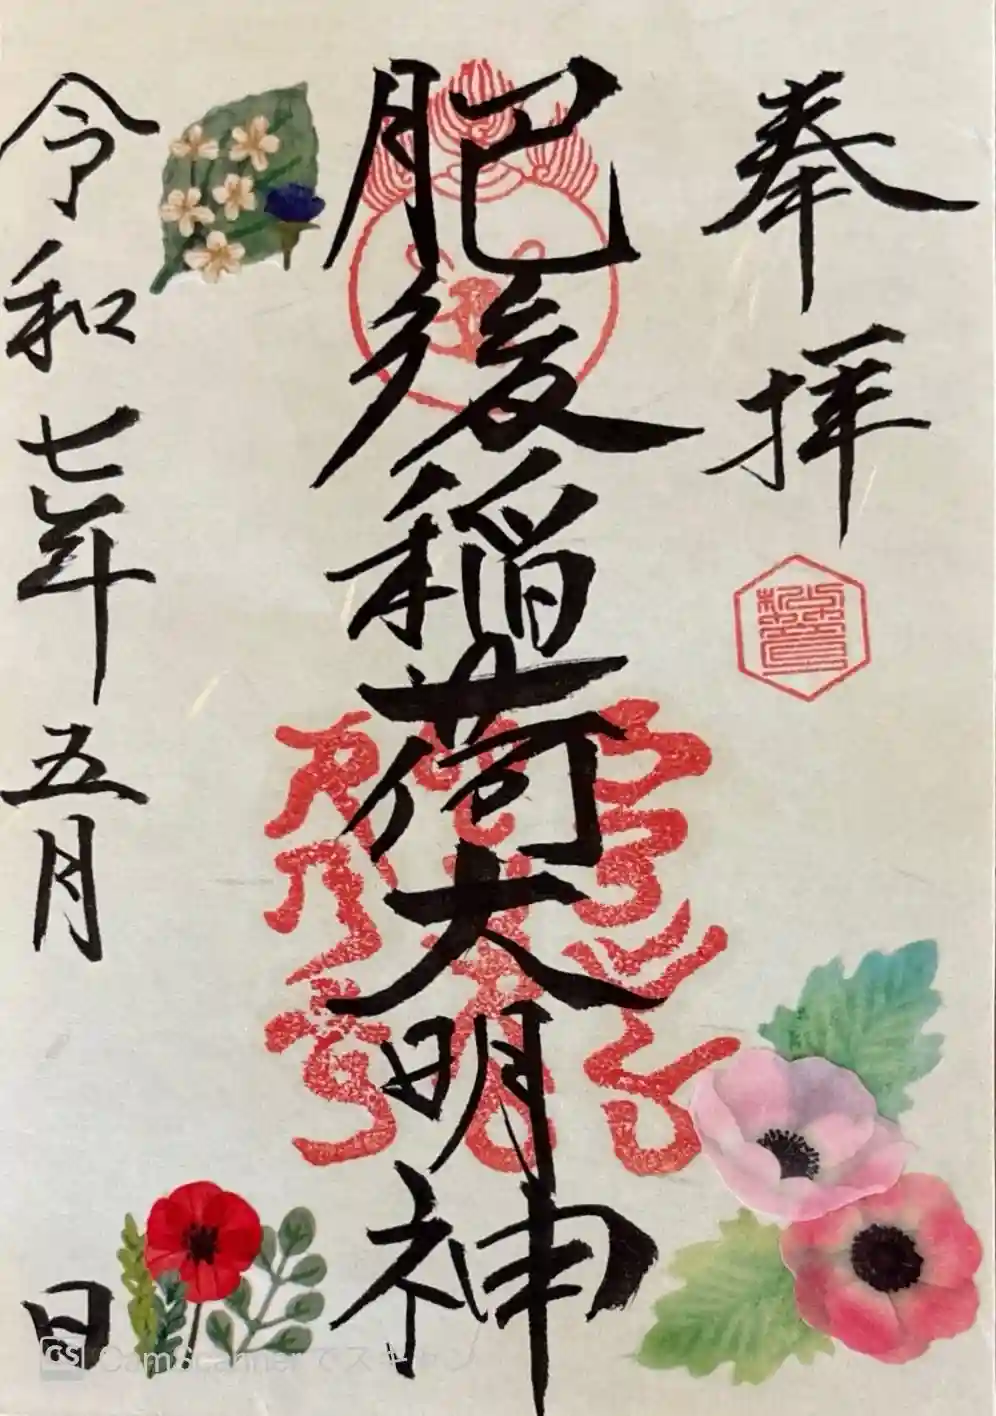 奉拝
肥後稲荷大明神
令和七年五月 日
CS CamScannerでスキャン